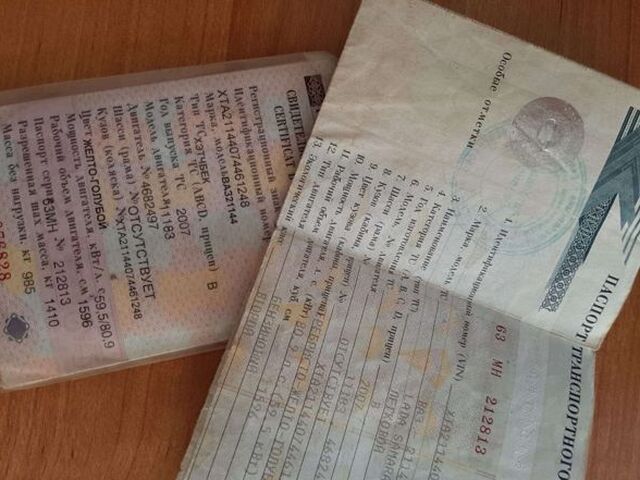 СВИДЕТЕЛЬ
CERTIFICAT
Регистрационный зна
Идентификационный номер
XTA21144074461248
Марка, модель ВАЗ21144
Тип ТС ХЭТЧБЕК
Категория ТС (ABCD, прицеп) B
Год выпуска ТС 2007
Модель двигателя 11183
Двигатель № 4682497
Шасси (рама) № ОТСУТСТВУЕТ
Кузов (коляска) № XTA21144074461248
Цвет ЖЕЛТО-ГОЛУБОЙ
Мощность двигателя, кВт/л. с. 59,5/80.9
Рабочий объем двигателя, см 1596
Паспорт серия 63МН № 212813
Разрешенная max масса, кг 1410
Масса без нагрузки, кг 985
ПАСПОРТ ТРАНСПОРТНОГО
63 МН 212813
Особые отметки
1. Идентификационный номер (VIN) XTA2114407
2. Марка, модель ВАЗ 2114
LADA SAMARA
3. Наименование (тип ТС) ЛЕГКОВОЙ
4. Категория ТС (A, B, C, D, прицеп) B
5. Год изготовления ТС 2007
6. Модель, № двигателя 11183 4682
7. Шасси (рама) № ОТСУТСТВУЕТ
8. Кузов (кабина, прицеп) № XTA211440744461
9. Цвет кузова (кабины)
10. Мощность двигателя, л. с. (кВт) 80.9 л.с.(59.5 кВт)
11. Рабочий объем двигателя, куб. см 1596
12. Тип двигателя БЕНЗИНОВЫЙ
13. Экологический